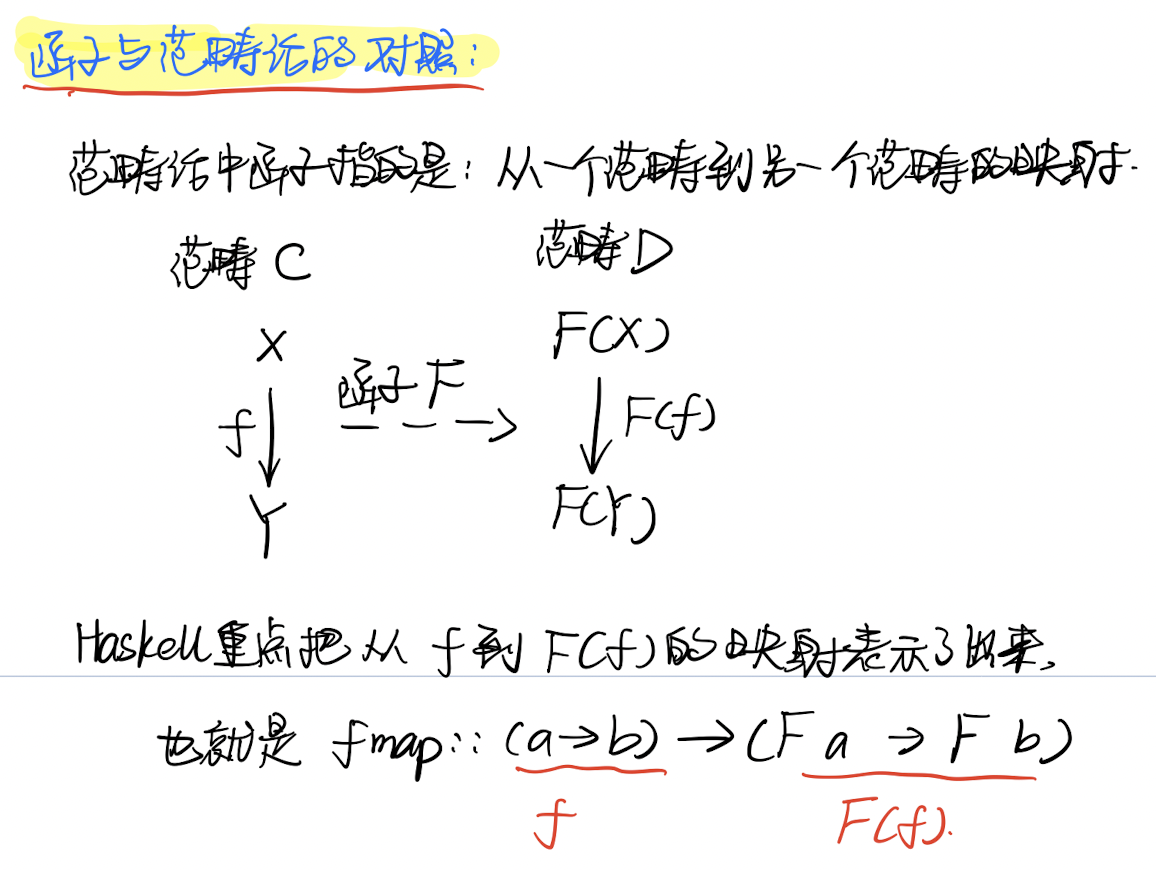 函子与范畴论的对照:
范畴论中函子指的是: 从一个范畴到另一个范畴的映射.
范畴 C
范畴 D
X
F(X)
函子 F
f
F(f)
Y
F(Y)
Haskell重点把从 f 到 F(f)的映射表示了出来,
也就是 fmap:: (a→b) → (F a → F b)
f
F(f).